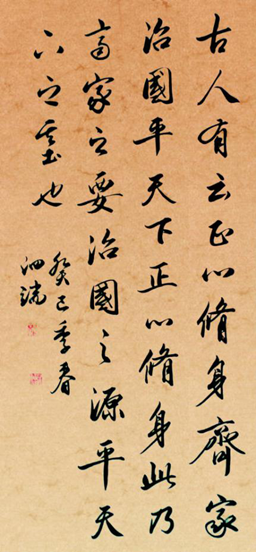 古人有云正心脩身齊家
治國平天下正心脩身此乃
齊家之要治國之源平天
下之也
癸巳季春